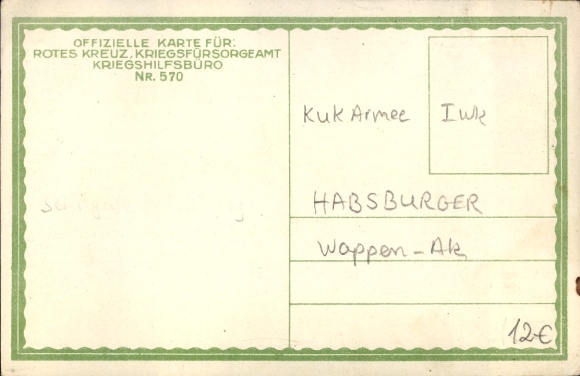 OFFIZIELLE KARTE FÜR:
ROTES KREUZ, KRIEGSFÜRSORGEAMT
KRIEGSHILFSBÜRO
NR. 570
KuK Armee Iwk
HABSBURGER
Wappen-Ak
12€